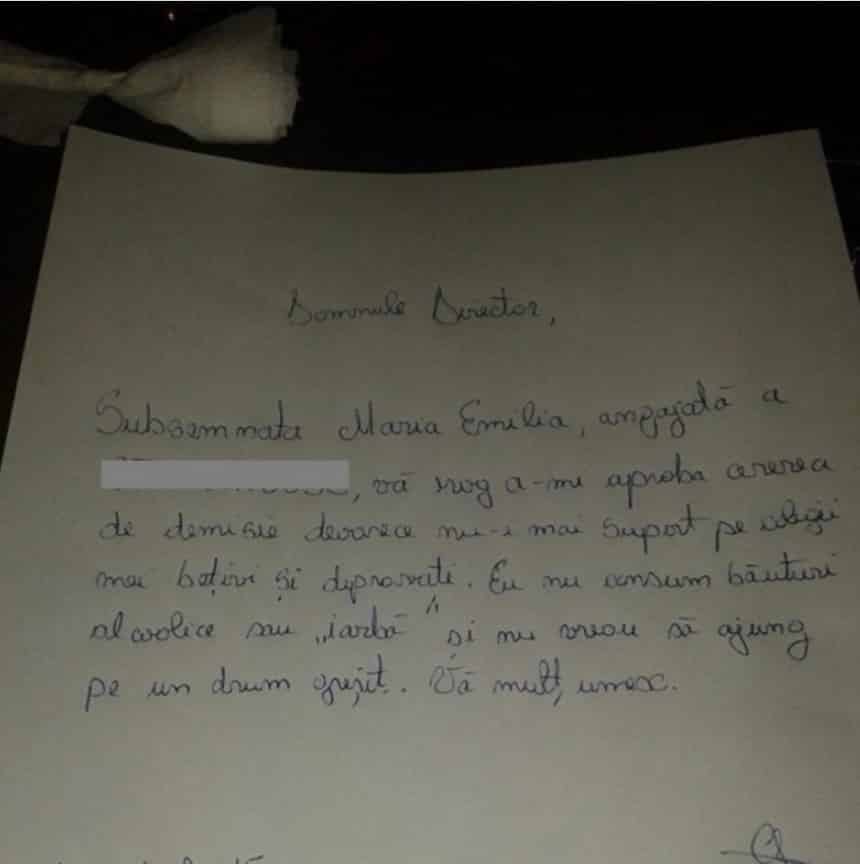 Domnule Director,
Subsemnata Maria Emilia, angajată a
, vă rog a-mi aproba cererea
de demisie deoarece nu-i mai suport pe colegii
mei bețivi și depravați. Eu nu consum băuturi
alcoolice sau „iarbă" și nu vreau să ajung
pe un drum greșit. Vă mulțumesc.